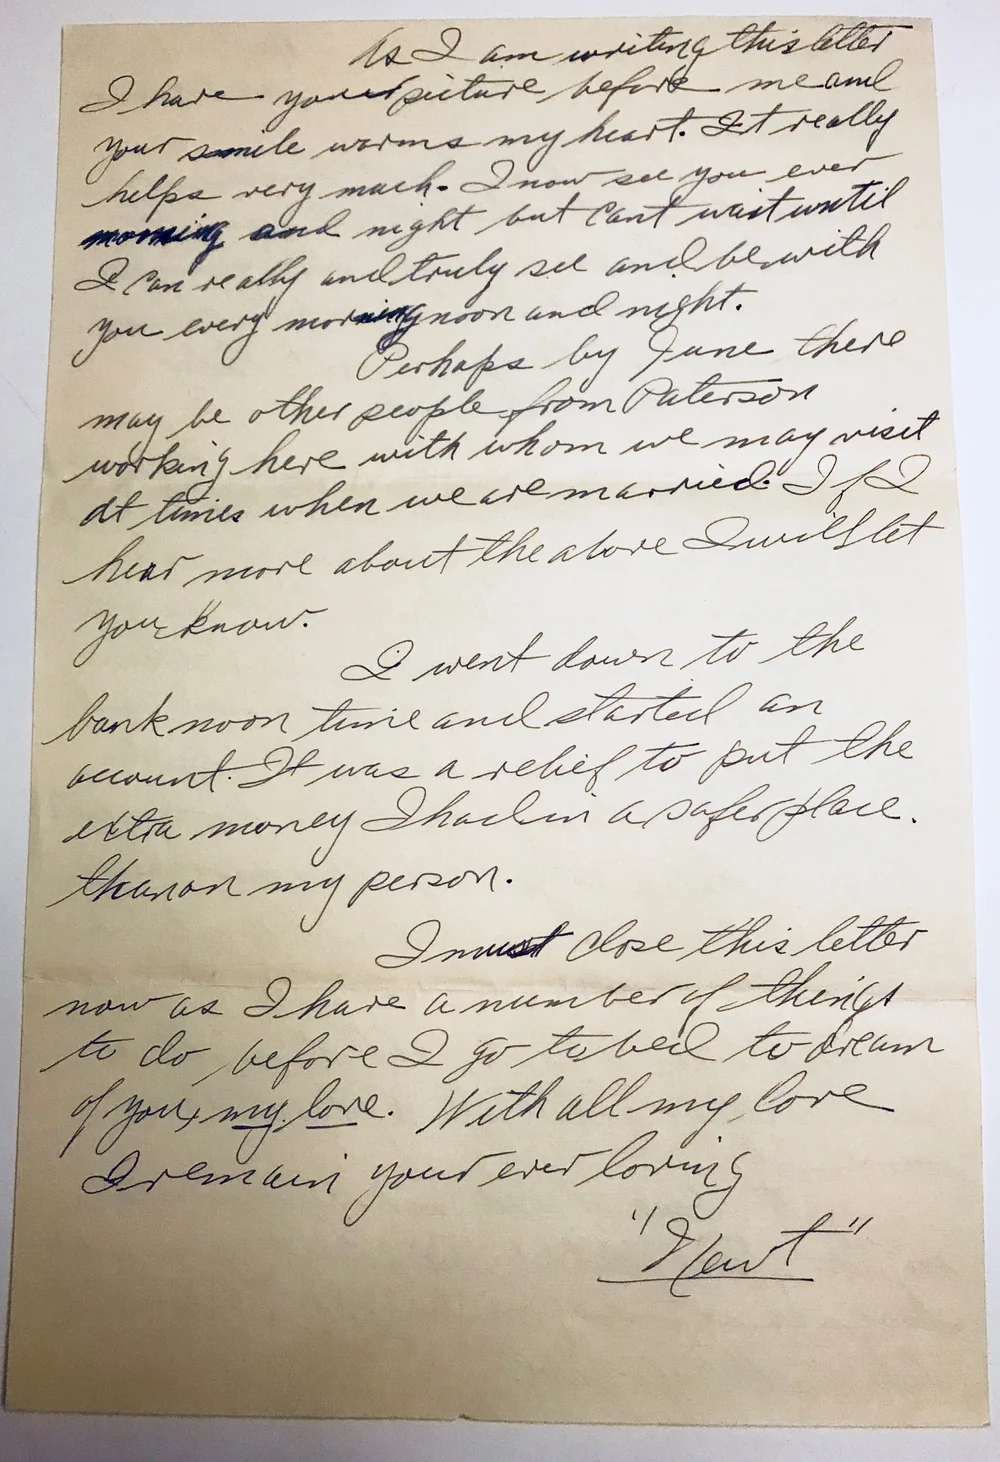 As I am writing this letter
I have your picture before me and
your smile warms my heart. It really
helps very much. I now see you ever
morning and night but cant wait until
I can really and truly see and be with
you every morning noon and night.
Perhaps by June there
may be other people from Paterson
working here with whom we may visit
at times when we are married. If I
hear more about the above I will let
you know.
I went down to the
bank noon time and started an
account. It was a relief to put the
extra money I had in a safer place.
than on my person.
I must close this letter
now as I have a number of things
to do before I go to bed to dream
of you, my love. With all my love
I remain your ever loving
"Newt"